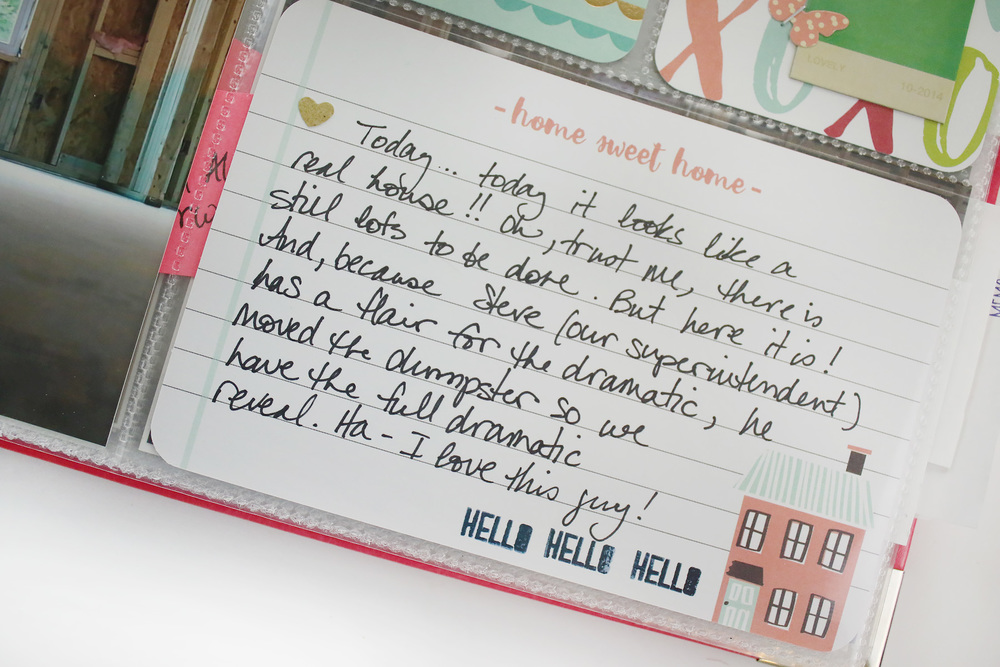 LOVELY
10-2014
-home sweet home-
Today... today it looks like a
real house!! Oh, trust me, there is
still lots to be done. But here it is!
And, because Steve (our superintendent)
has a flair for the dramatic, he
moved the dumpster so we
have the full dramatic
reveal. Ha - I love this guy!
HELLO HELLO HELLO